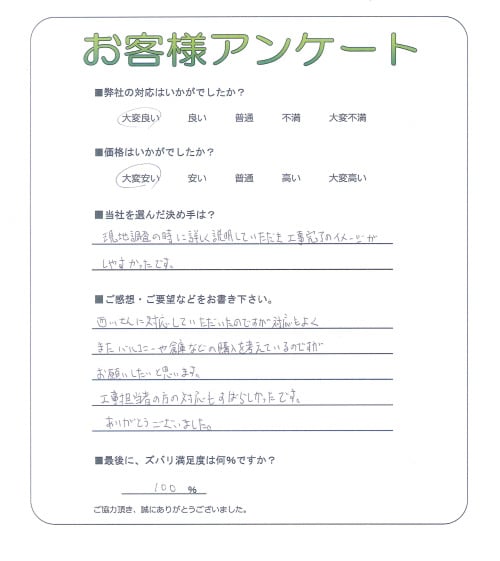 お客様アンケート
■弊社の対応はいかがでしたか？
大変良い 良い 普通 不満 大変不満
■価格はいかがでしたか？
大変安い 安い 普通 高い 大変高い
■当社を選んだ決め手は？
現地調査の時に詳しく説明していただき工事完了のイメージが
しやすかったです。
■ご感想・ご要望などをお書き下さい。
西川さんに対応していただいたのですが対応もよく
またバルコニーや倉庫などの購入を考えているのですが
お願いしたいと思います。
工事担当者の方の対応もすばらしかったです。
ありがとうございました。
■最後に、ズバリ満足度は何%ですか？
100 %
ご協力頂き、誠にありがとうございました。